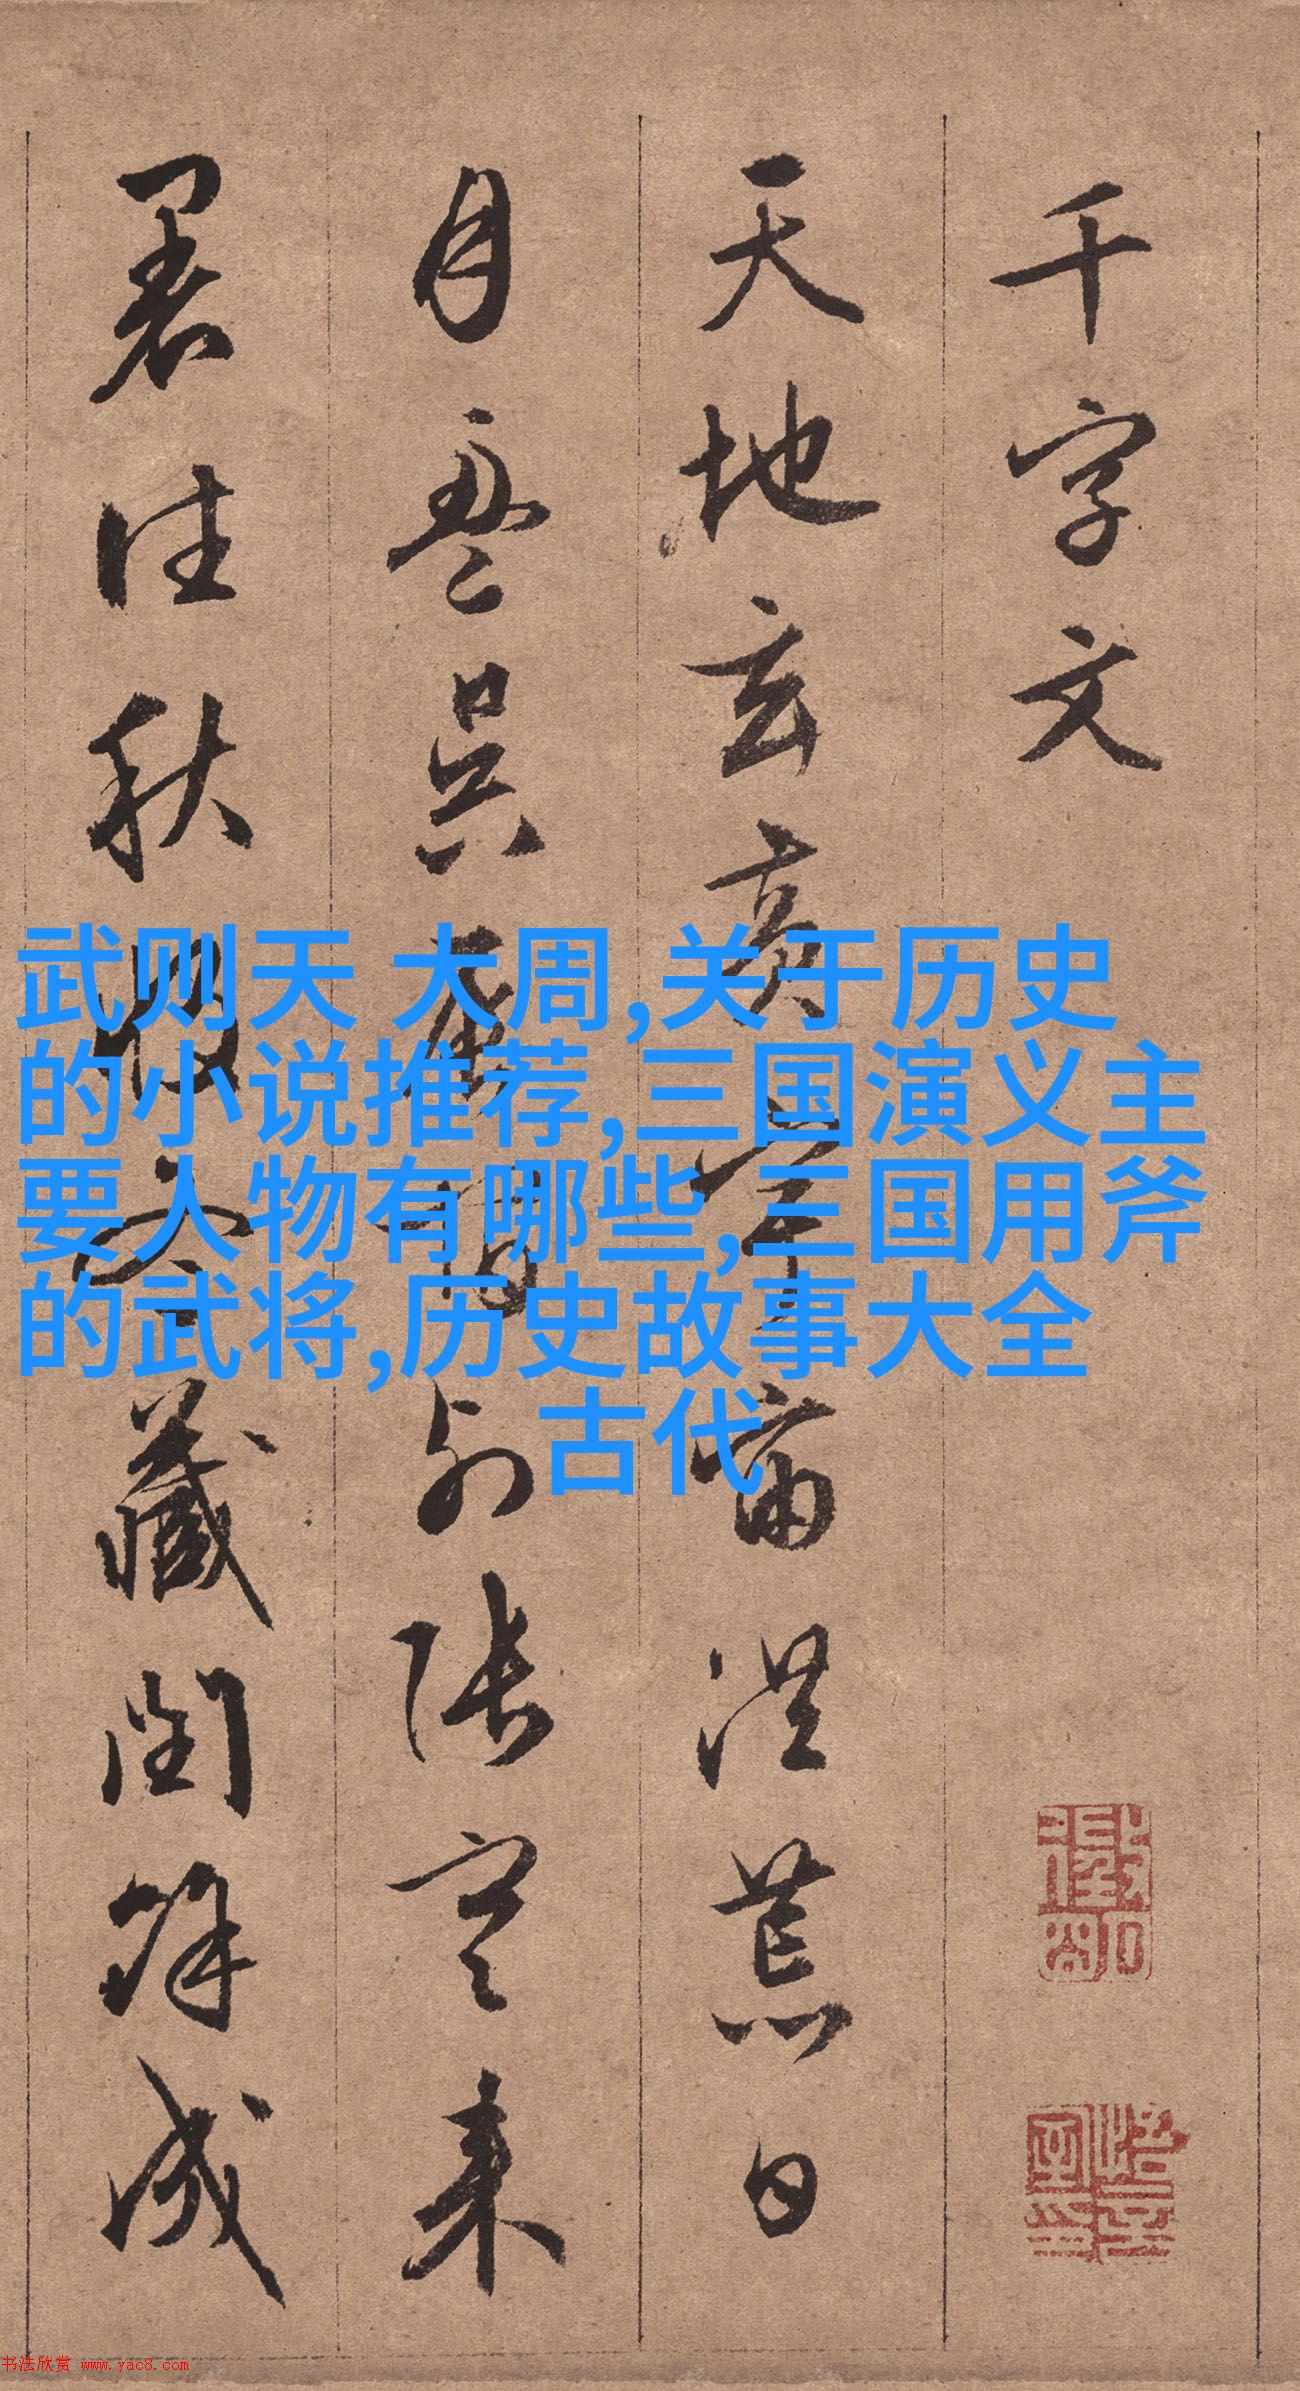 千字文
天地玄黄宇宙洪荒日
月盈昃辰宿列張寒来
暑往秋收冬藏閏餘成
武则天 大周,关于历史
的小说推荐,三国演义主
要人物有哪些,三国用斧
的武将,历史故事大全
古代
书法欣赏 www.yac8.com